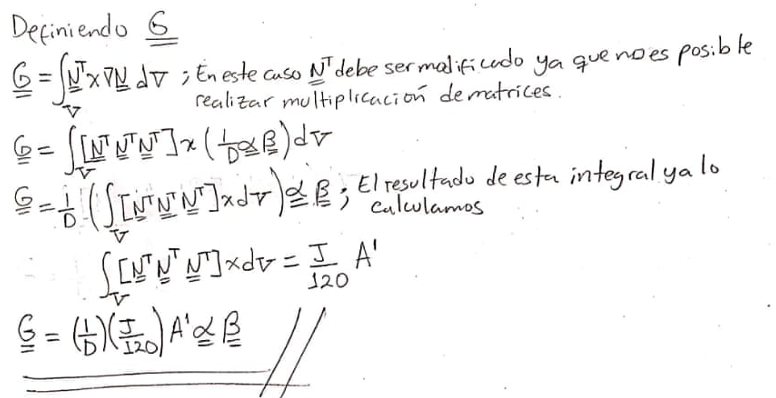 Definiendo G
G = ∫_V N^T x ∇N dV ; En este caso N^T debe ser modificado ya que no es posible
realizar multiplicación de matrices.
G = ∫_V [N^T N^T N^T] x (1/D α β) dV
G = 1/D (∫_V [N^T N^T N^T] x dV) α β ; El resultado de esta integral ya lo
calculamos
∫_V [N^T N^T N^T] x dV = J/120 A'
G = (1/D)(J/120) A' α β //